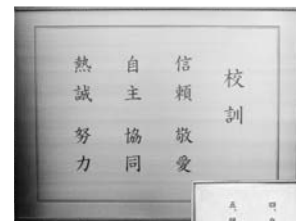 校訓
信頼 敬愛
自主 協同
熱誠 努力